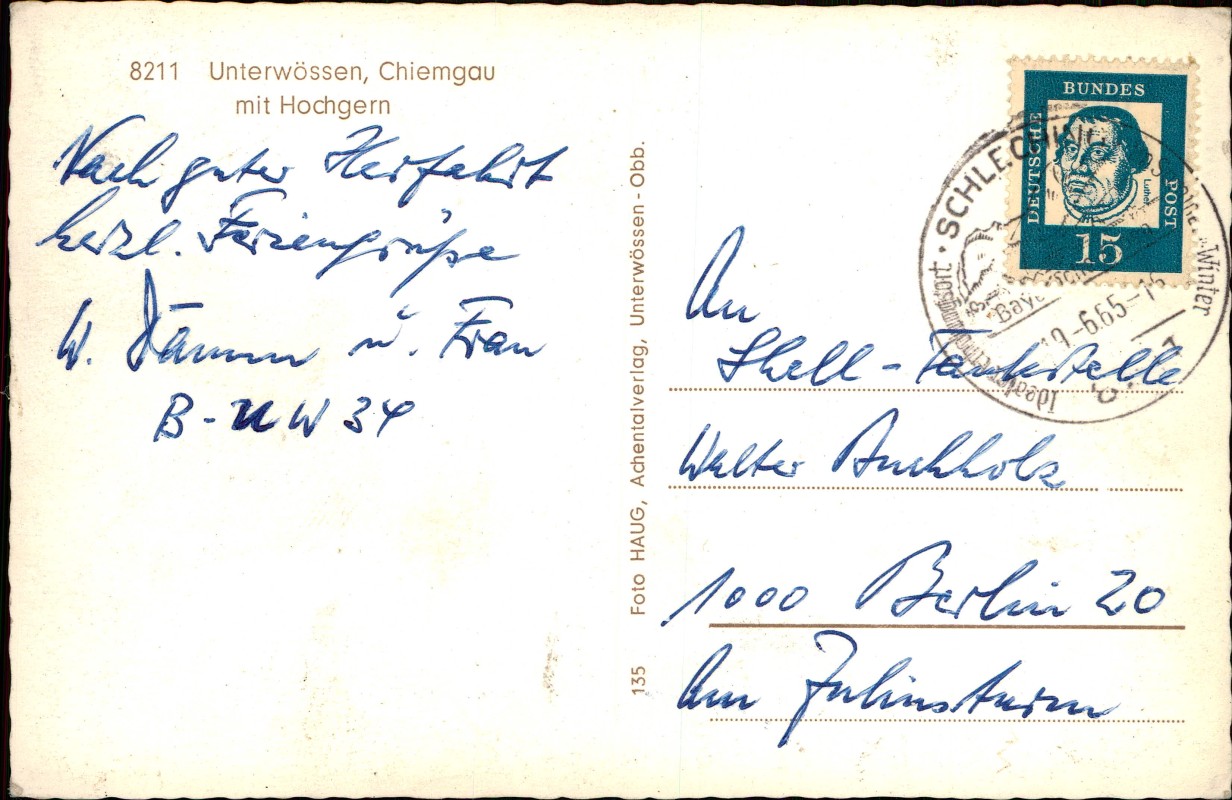 8211 Unterwössen, Chiemgau
mit Hochgern
Nach guter Herfahrt
herzl. Feriengrüße
W. Dämm u. Frau
B-UW 34
135 Foto HAUG, Achentalverlag, Unterwössen-Obb.
BUNDES
DEUTSCHE
POST
Luther
15
SCHLECHING
Winter
-6.65-16
An
Shell-Tankstelle
Walter Buchholz
1000 Berlin 20
Am Juliusturm